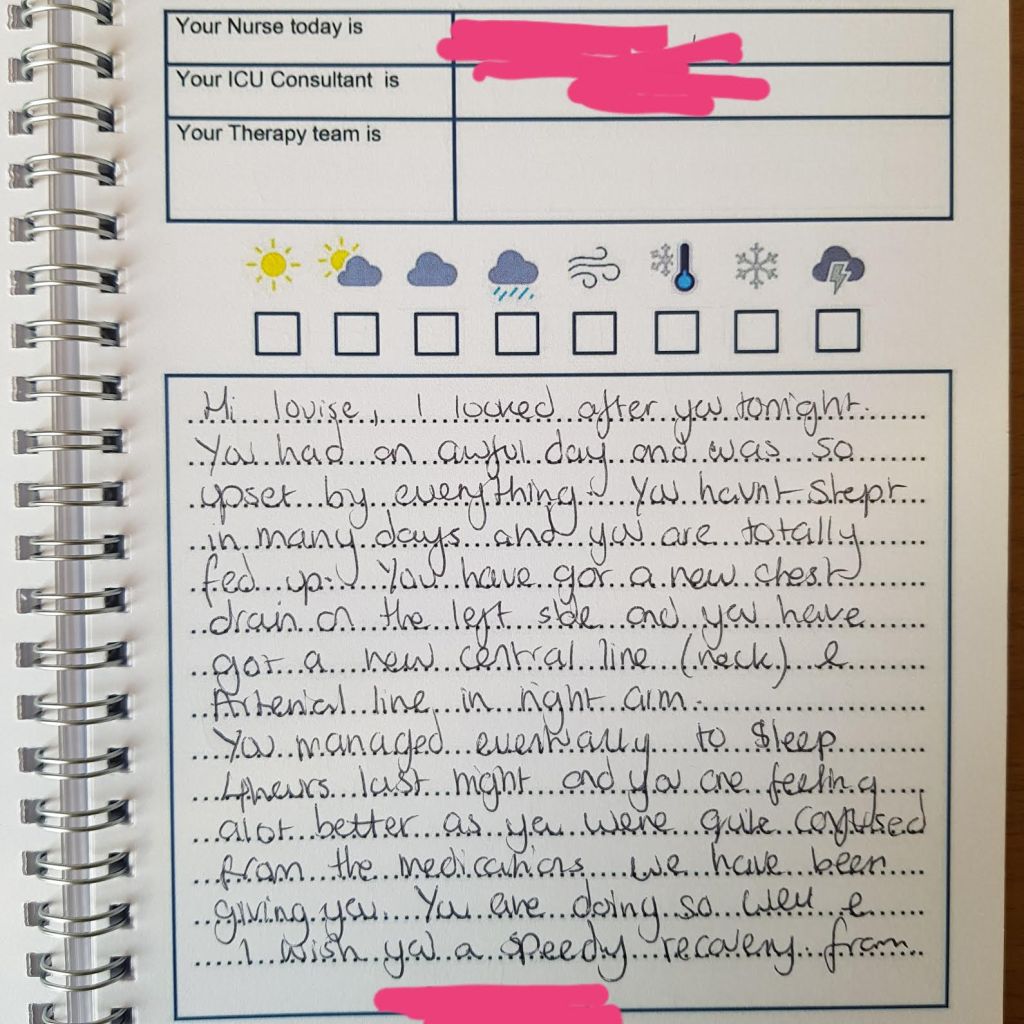 Your Nurse today is
Your ICU Consultant is
Your Therapy team is
Hi louise, I looked after you tonight.
You had an awful day and was so
upset by everything. You havnt slept
in many days and you are totally
fed up. You have got a new chest
drain on the left side and you have
got a new central line (neck) &
Arterial line in right arm.
You managed eventually to sleep
4hours last night and you are feeling
alot better as you were quite confused
from the medications we have been
giving you. You are doing so well &
I wish you a speedy recovery from